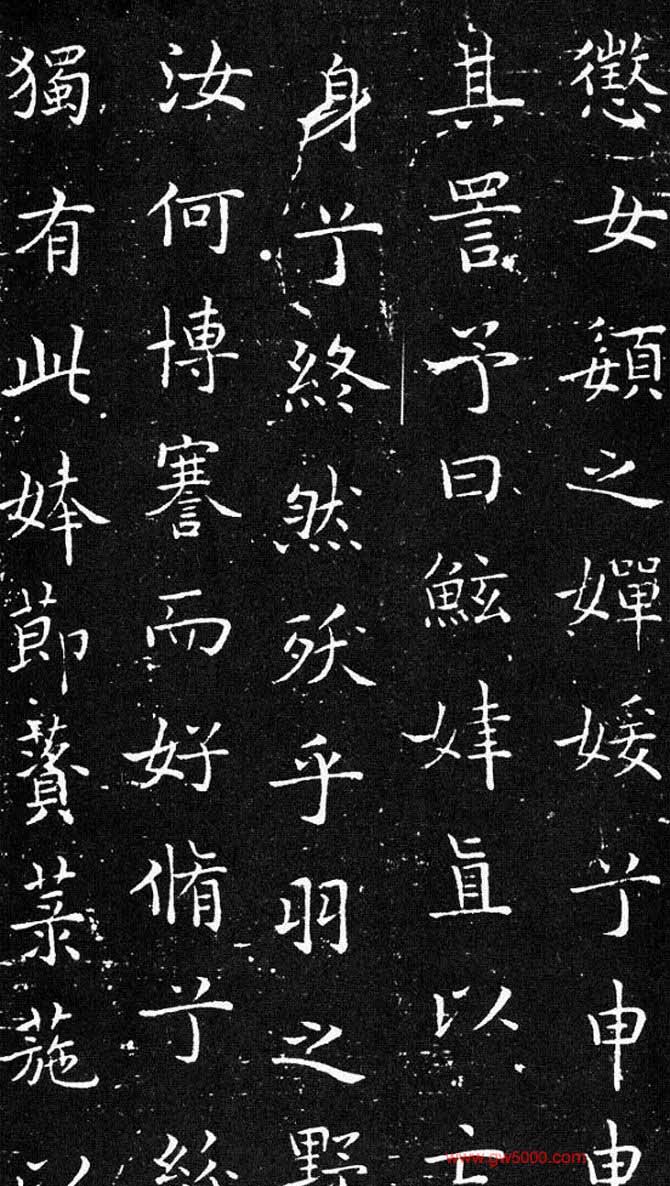 懲女嬃之嬋媛兮申申
其詈予曰鮌婞直以亡
身兮終然殀乎羽之野
汝何博謇而好脩兮紛
獨有此姱節薋菉葹以
www.gw5000.com